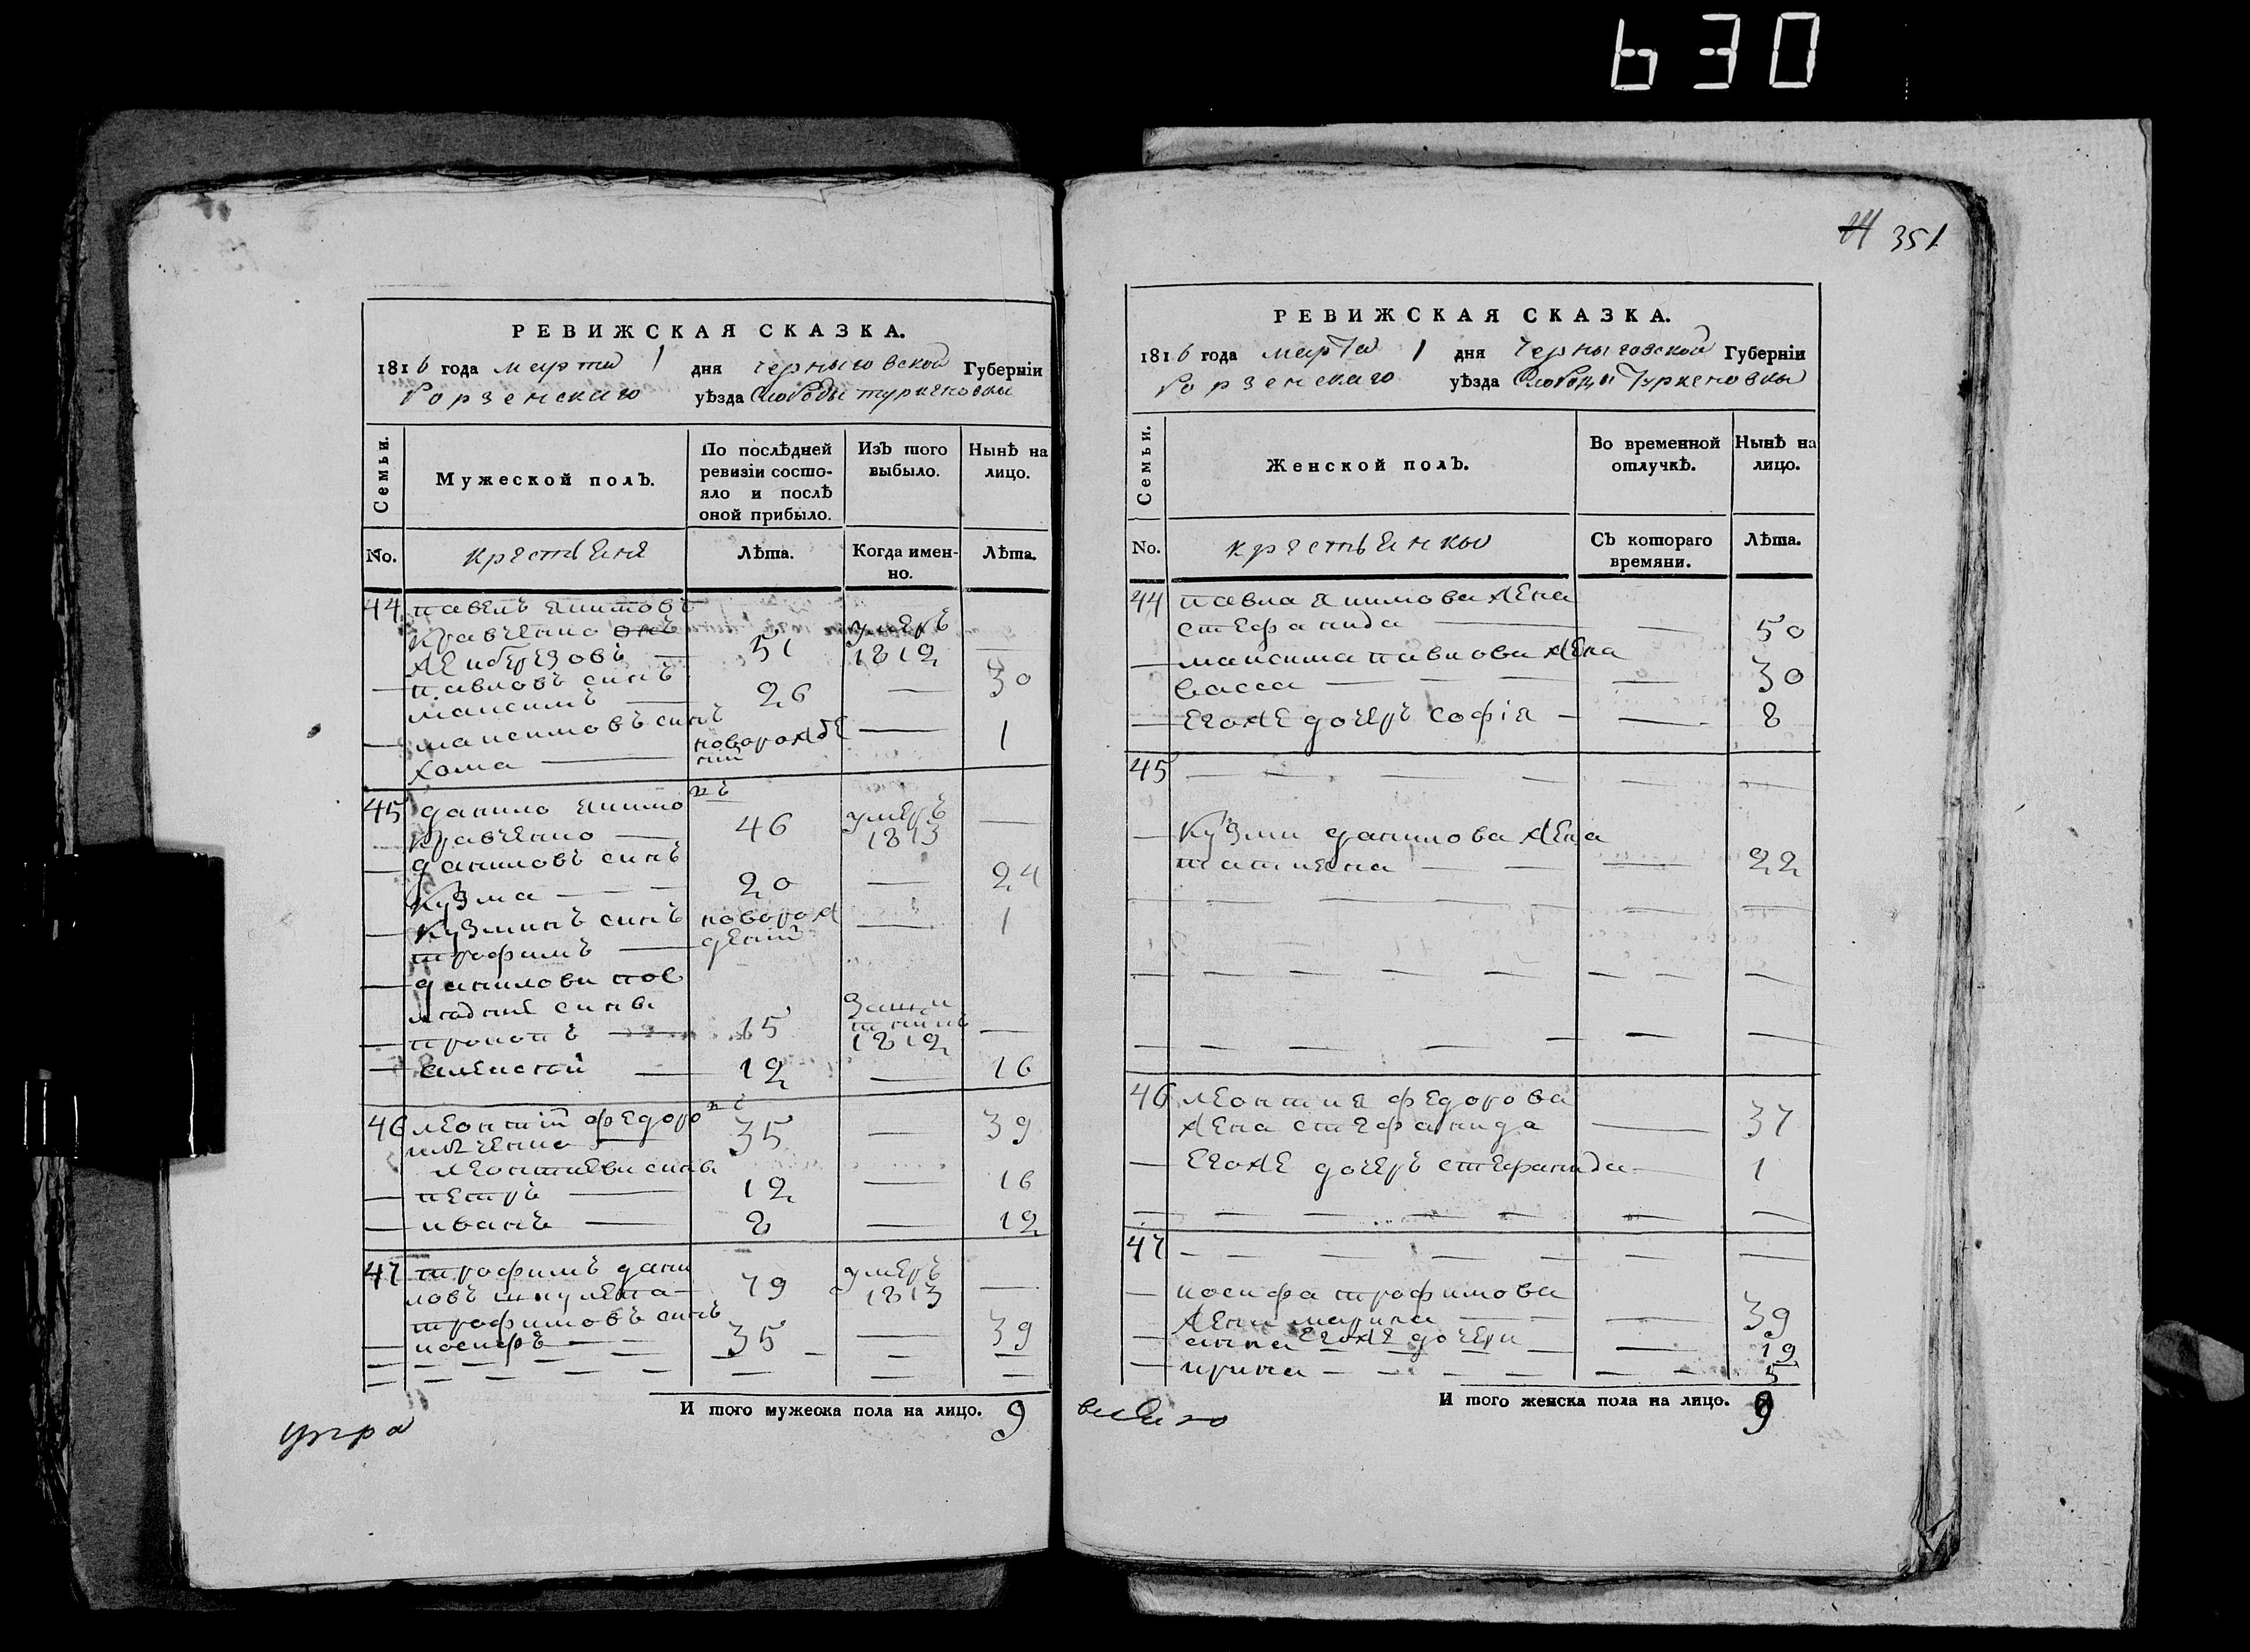 630
РЕВИЖСКАЯ СКАЗКА.
1816 года марта 1 дня Черныговской Губерніи
Борзенскаго уѣзда Слободы туркеновки
Семьи.
Мужеской полъ.
По послѣдней ревизіи состояло и послѣ оной прибыло.
Изъ того выбыло.
Нынѣ на лицо.
No.
крестьяне
Лѣта.
Когда именно.
Лѣта.
44 павелъ якимовъ
кравченко онъ умеръ
же иберезовъ — 51 1812 —
— павловъ синъ
максимъ — 26 — 30
— максимовъ синъ новорожде
хома — ний — 1
45 данило якимо въ
кравченко — 46 умеръ 1813 —
— даниловъ синъ
кузма — 20 — 24
— кузминъ синъ новорож
трофимъ — дений — 1
— данилови
синви
— прокопъ — 15 1812 —
— алексей — 12 — 16
46 леонтий федоро въ
35 — 39
леонтиеви синви
— петръ — 12 — 16
— иванъ — 8 — 12
47 трофимъ дани умеръ
ловъ шкулепа — 79 1813 —
трофимовъ синъ
— иосифъ — 35 — 39
И того мужеска пола на лицо. 9
351
РЕВИЖСКАЯ СКАЗКА.
1816 года марта 1 дня Черныговской Губерніи
Борзенскаго уѣзда Слободы Туркеновки
Семьи.
Женской полъ.
Во временной отлучкѣ.
Нынѣ на лицо.
No.
крестьянки
Съ котораго времяни.
Лѣта.
44 павла якимова жена
стефанида — — 50
— максима павлова жена
васса — — 30
— егоже дочеръ софія — — 8
45 — — —
— кузми данилова жена
татиена — — 22
46 леонтия федорова
жена стефанида — 37
— егоже дочеръ стефанида — 1
47 — — —
— иосифа трофимова
жена марина — — 39
егоже дочери
— анна — — 19
— ирина — — 5
И того женска пола на лицо. 9